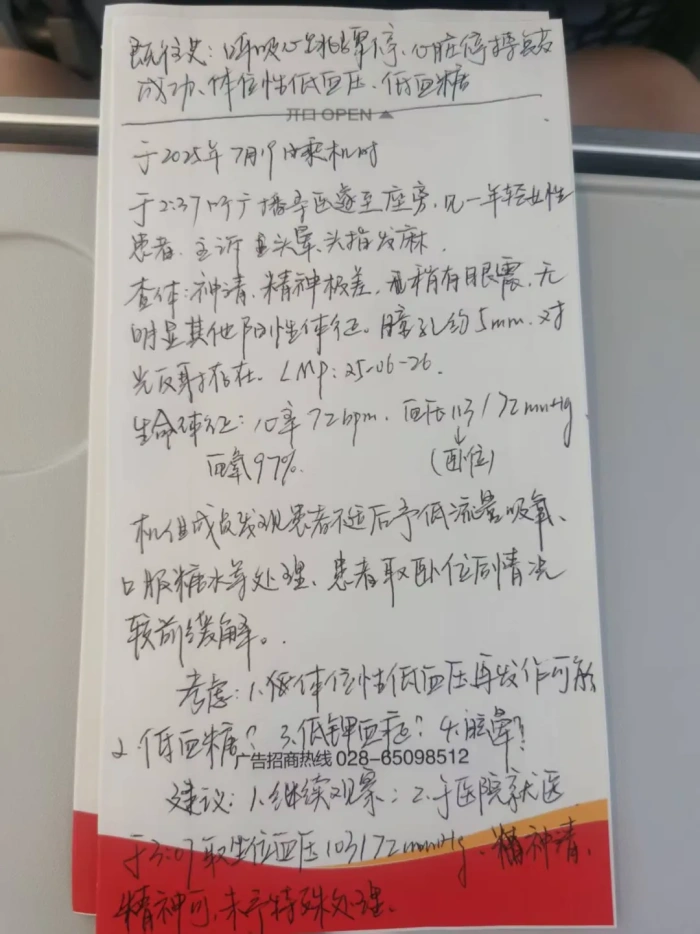 既往史：呼吸心跳骤停、心脏停搏复苏
成功、体位性低血压、低血糖
开口 OPEN
于2025年7月19日乘机时
于2:37呼广播寻医遂至座旁，见一年轻女性
患者，主诉头晕、头指发麻．
查体：神清、精神极差，稍有眼震，无
明显其他阳性体征。瞳孔约5mm．对
光反射存在．LMP：25-06-26．
生命体征：心率72bpm．血压113/72mmHg
血氧97%． (卧位)
机组成员发现患者不适后予低流量吸氧、
口服糖水等处理、患者取卧位后情况
较前缓解。
考虑：1.体位性低血压再发作可能
2.低血糖？3.低钾血症？4.眩晕？
广告招商热线 028-65098512
建议：1.继续观察；2.于医院就医
于3:07取坐位血压103/72mmHg、精神清、
精神可，未予特殊处理．